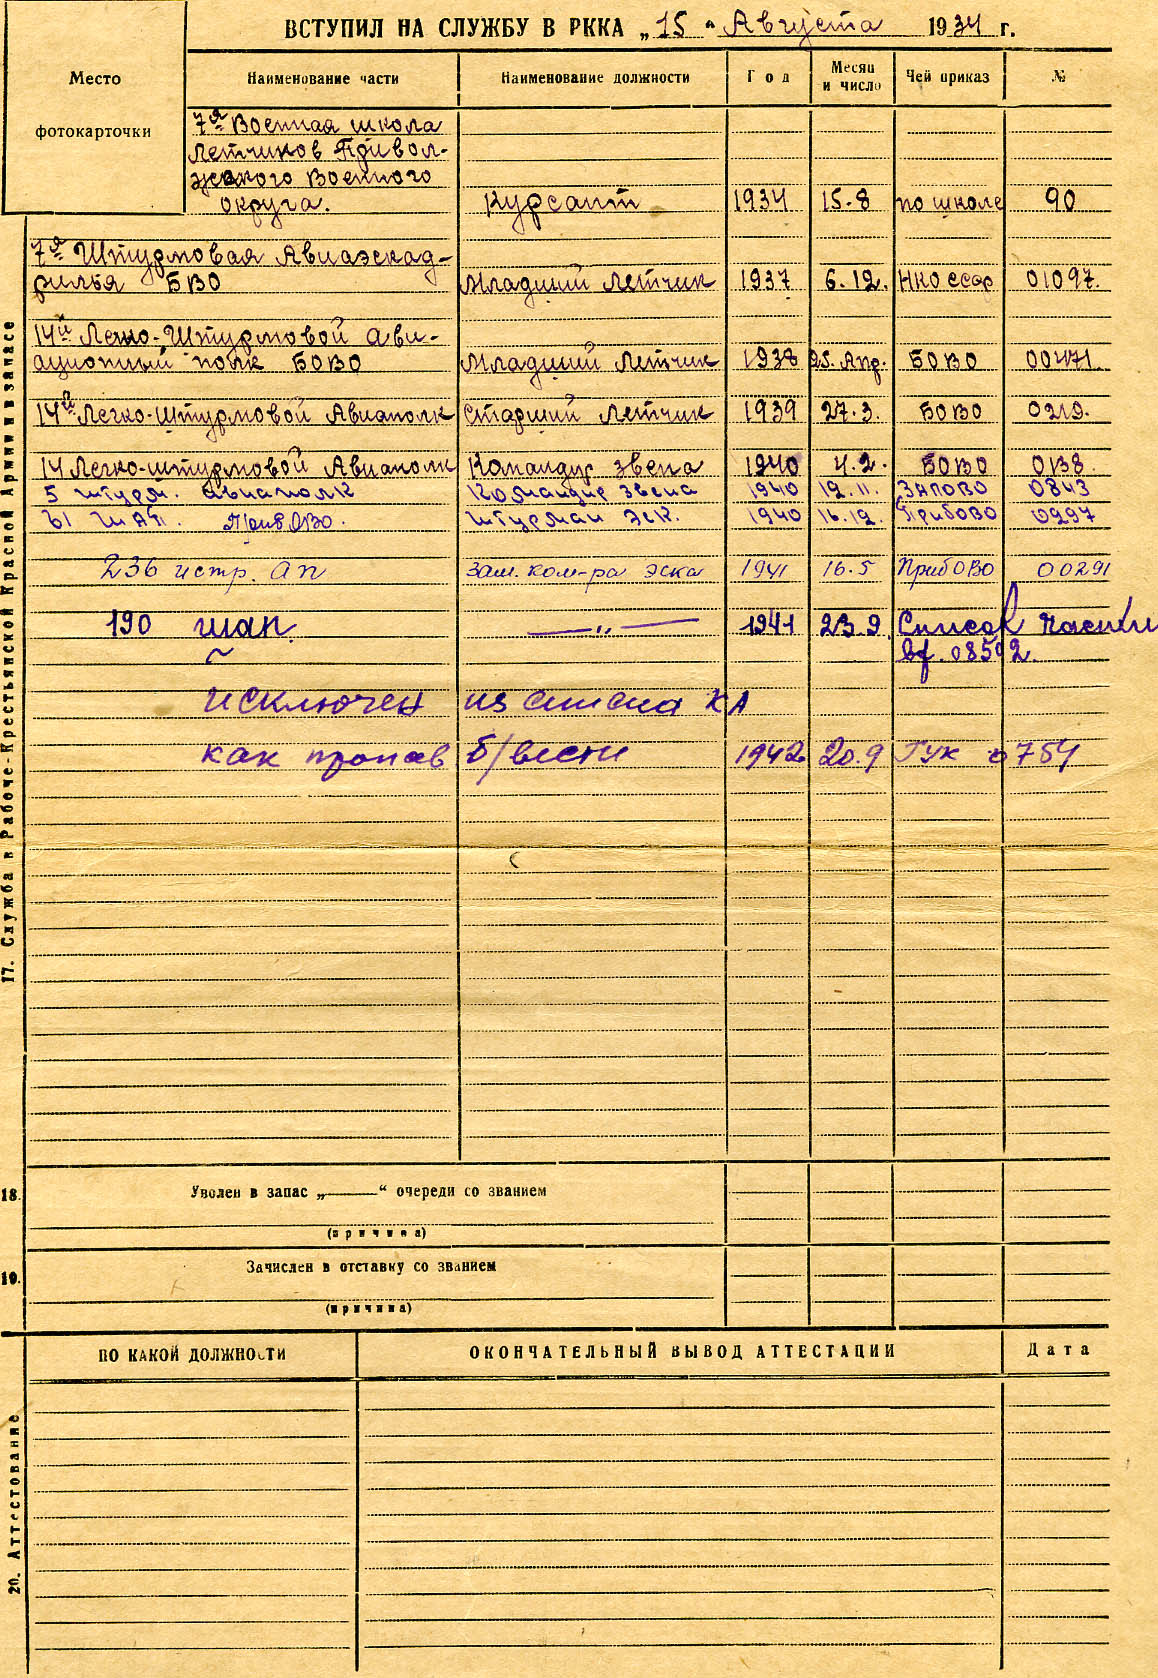 ВСТУПИЛ НА СЛУЖБУ В РККА „15“ Августа 1934 г.
Место
фотокарточки
Наименование части Наименование должности Год Месяц и число Чей приказ №
7я Военная школа
Летчиков Привол-
жского Военного
округа. Курсант 1934 15.8 по школе 90
7я Штурмовая Авиаэскад-
рилья БВО Младший Летчик 1937 6.12. НКО ссср 01097.
14й Легко-Штурмовой Ави-
ационный полк БОВО Младший Летчик 1938 25. Апр. БОВО 00471
14й Легко-Штурмовой Авиаполк Старший Летчик 1939 27.3. БОВО 0219.
14 Легко-штурмовой Авиаполк Командир звена 1940 4.2. БОВО 0138.
5 штурм. авиаполк Командир звена 1940 12.11. ЗАПОВО 0843
61 ШАП. ПрибОВО. штурман эск. 1940 16.12. ПрибОВО 0297
236 истр. ап зам. ком-ра эска 1941 16.5 ПрибОВО 00291
190 шап. —„— 1941 23.9. Список части
вх. 08502.
исключен из списка КА
как пропав б/вести 1942 20.9 ГУК 0754
17. Служба в Рабоче-Крестьянской Красной Армии и в запасе
18. Уволен в запас „——“ очереди со званием
(причина)
19. Зачислен в отставку со званием
(причина)
20. Аттестование
ПО КАКОЙ ДОЛЖНОСТИ ОКОНЧАТЕЛЬНЫЙ ВЫВОД АТТЕСТАЦИИ Дата